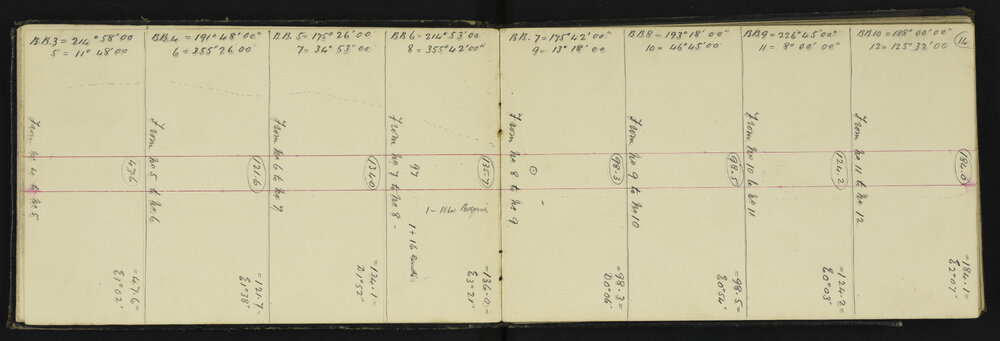 BB.3 = 214° 58' 00
5 = 11° 48' 00
From No 4 to No 5
47.6
= 47.6 =
E 1° 02'
BB.4 = 191° 48' 00"
6 = 355° 26' 00
From No 5 to No 6
121.6
= 121.7 =
E 1° 38'
BB.5 = 175° 26' 00
7 = 34° 53' 00
From No 6 to No 7
134.0
= 134.1 =
D 1° 52'
BB.6 = 214° 53' 00
8 = 355° 42' 00"
From No 7 to No 8 -
97
1 + 16 ends
1 - 1164 Begins
135.7
= 136.0 =
E 3° 21'
BB.7 = 175° 42' 00"
9 = 13° 18' 00
From No 8 to No 9
98.3
= 98.3 =
D 0° 06'
BB8 = 193° 18' 00"
10 = 46° 45' 00
From No 9 to No 10
98.5
= 98.5 =
E 0° 54'
BB9 = 226° 45' 00"
11 = 8° 00' 00"
From No 10 to No 11
124.2
= 124.2 =
E 0° 03'
BB10 = 188° 00' 00"
12 = 125° 32' 00
14
From No 11 to No 12
184.0
= 184.1 =
E 2° 07'